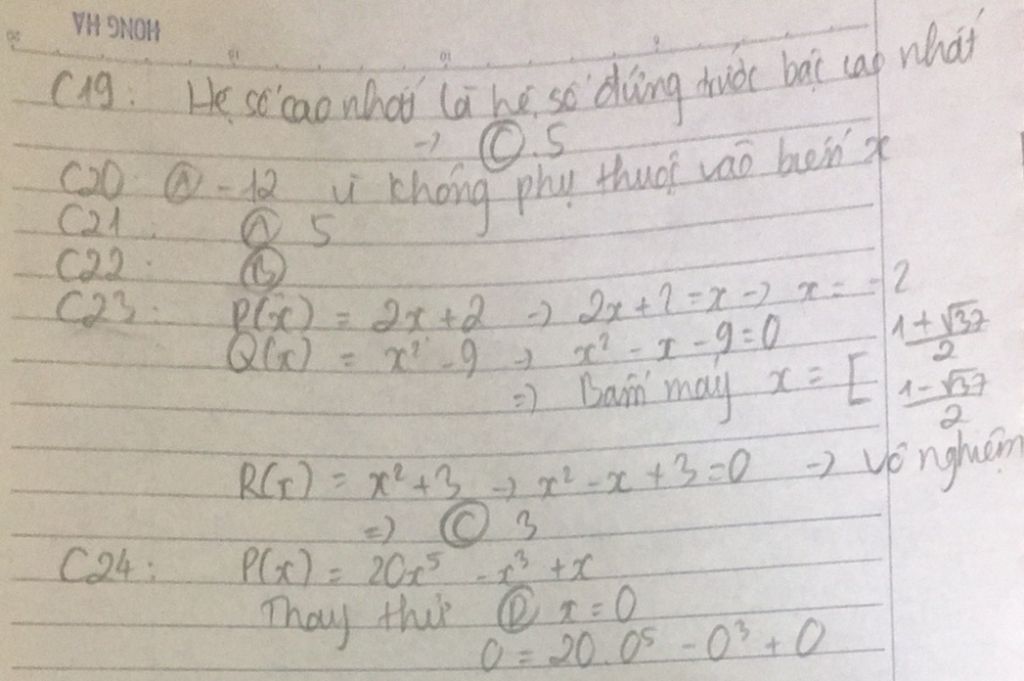 HONG HA
C19: Hệ số cao nhất là hệ số đứng trước bậc cao nhất
→ Ⓒ. 5
C20 Ⓐ -12 vì không phụ thuộc vào biến x
C21: Ⓐ 5
C22: Ⓑ
C23: P(x) = 2x+2 → 2x+2=x → x = -2
Q(x) = x² - 9 → x² - x - 9 = 0
=> Bấm máy x = [ (1+√37)/2
(1-√37)/2
R(x) = x² + 3 → x² - x + 3 = 0 → vô nghiệm
=> Ⓒ 3
C24: P(x) = 20x⁵ - x³ + x
Thay thử Ⓓ x = 0
0 = 20.0⁵ - 0³ + 0